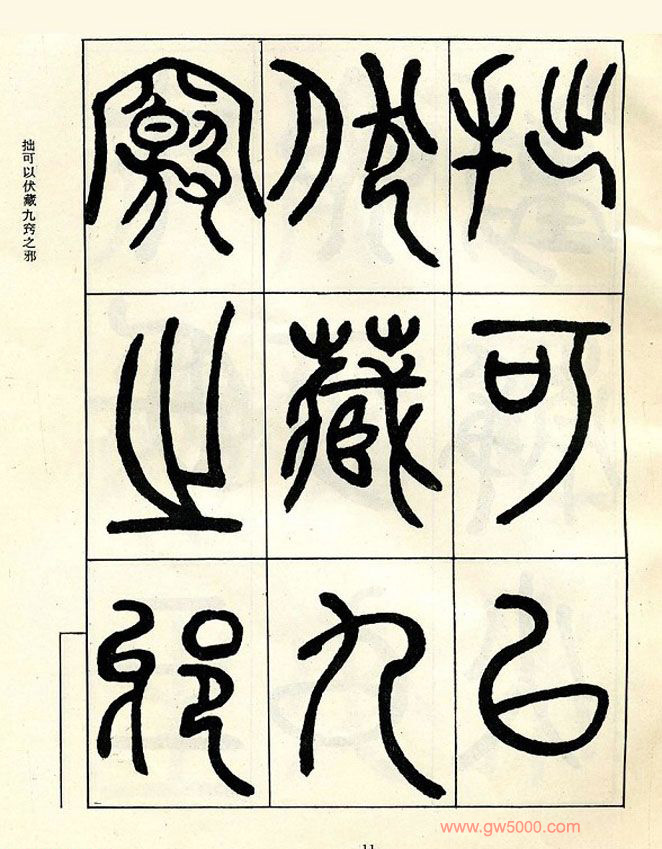 拙可以
伏藏九
窍之邪
拙可以伏藏九窍之邪
www.gw5000.com
11